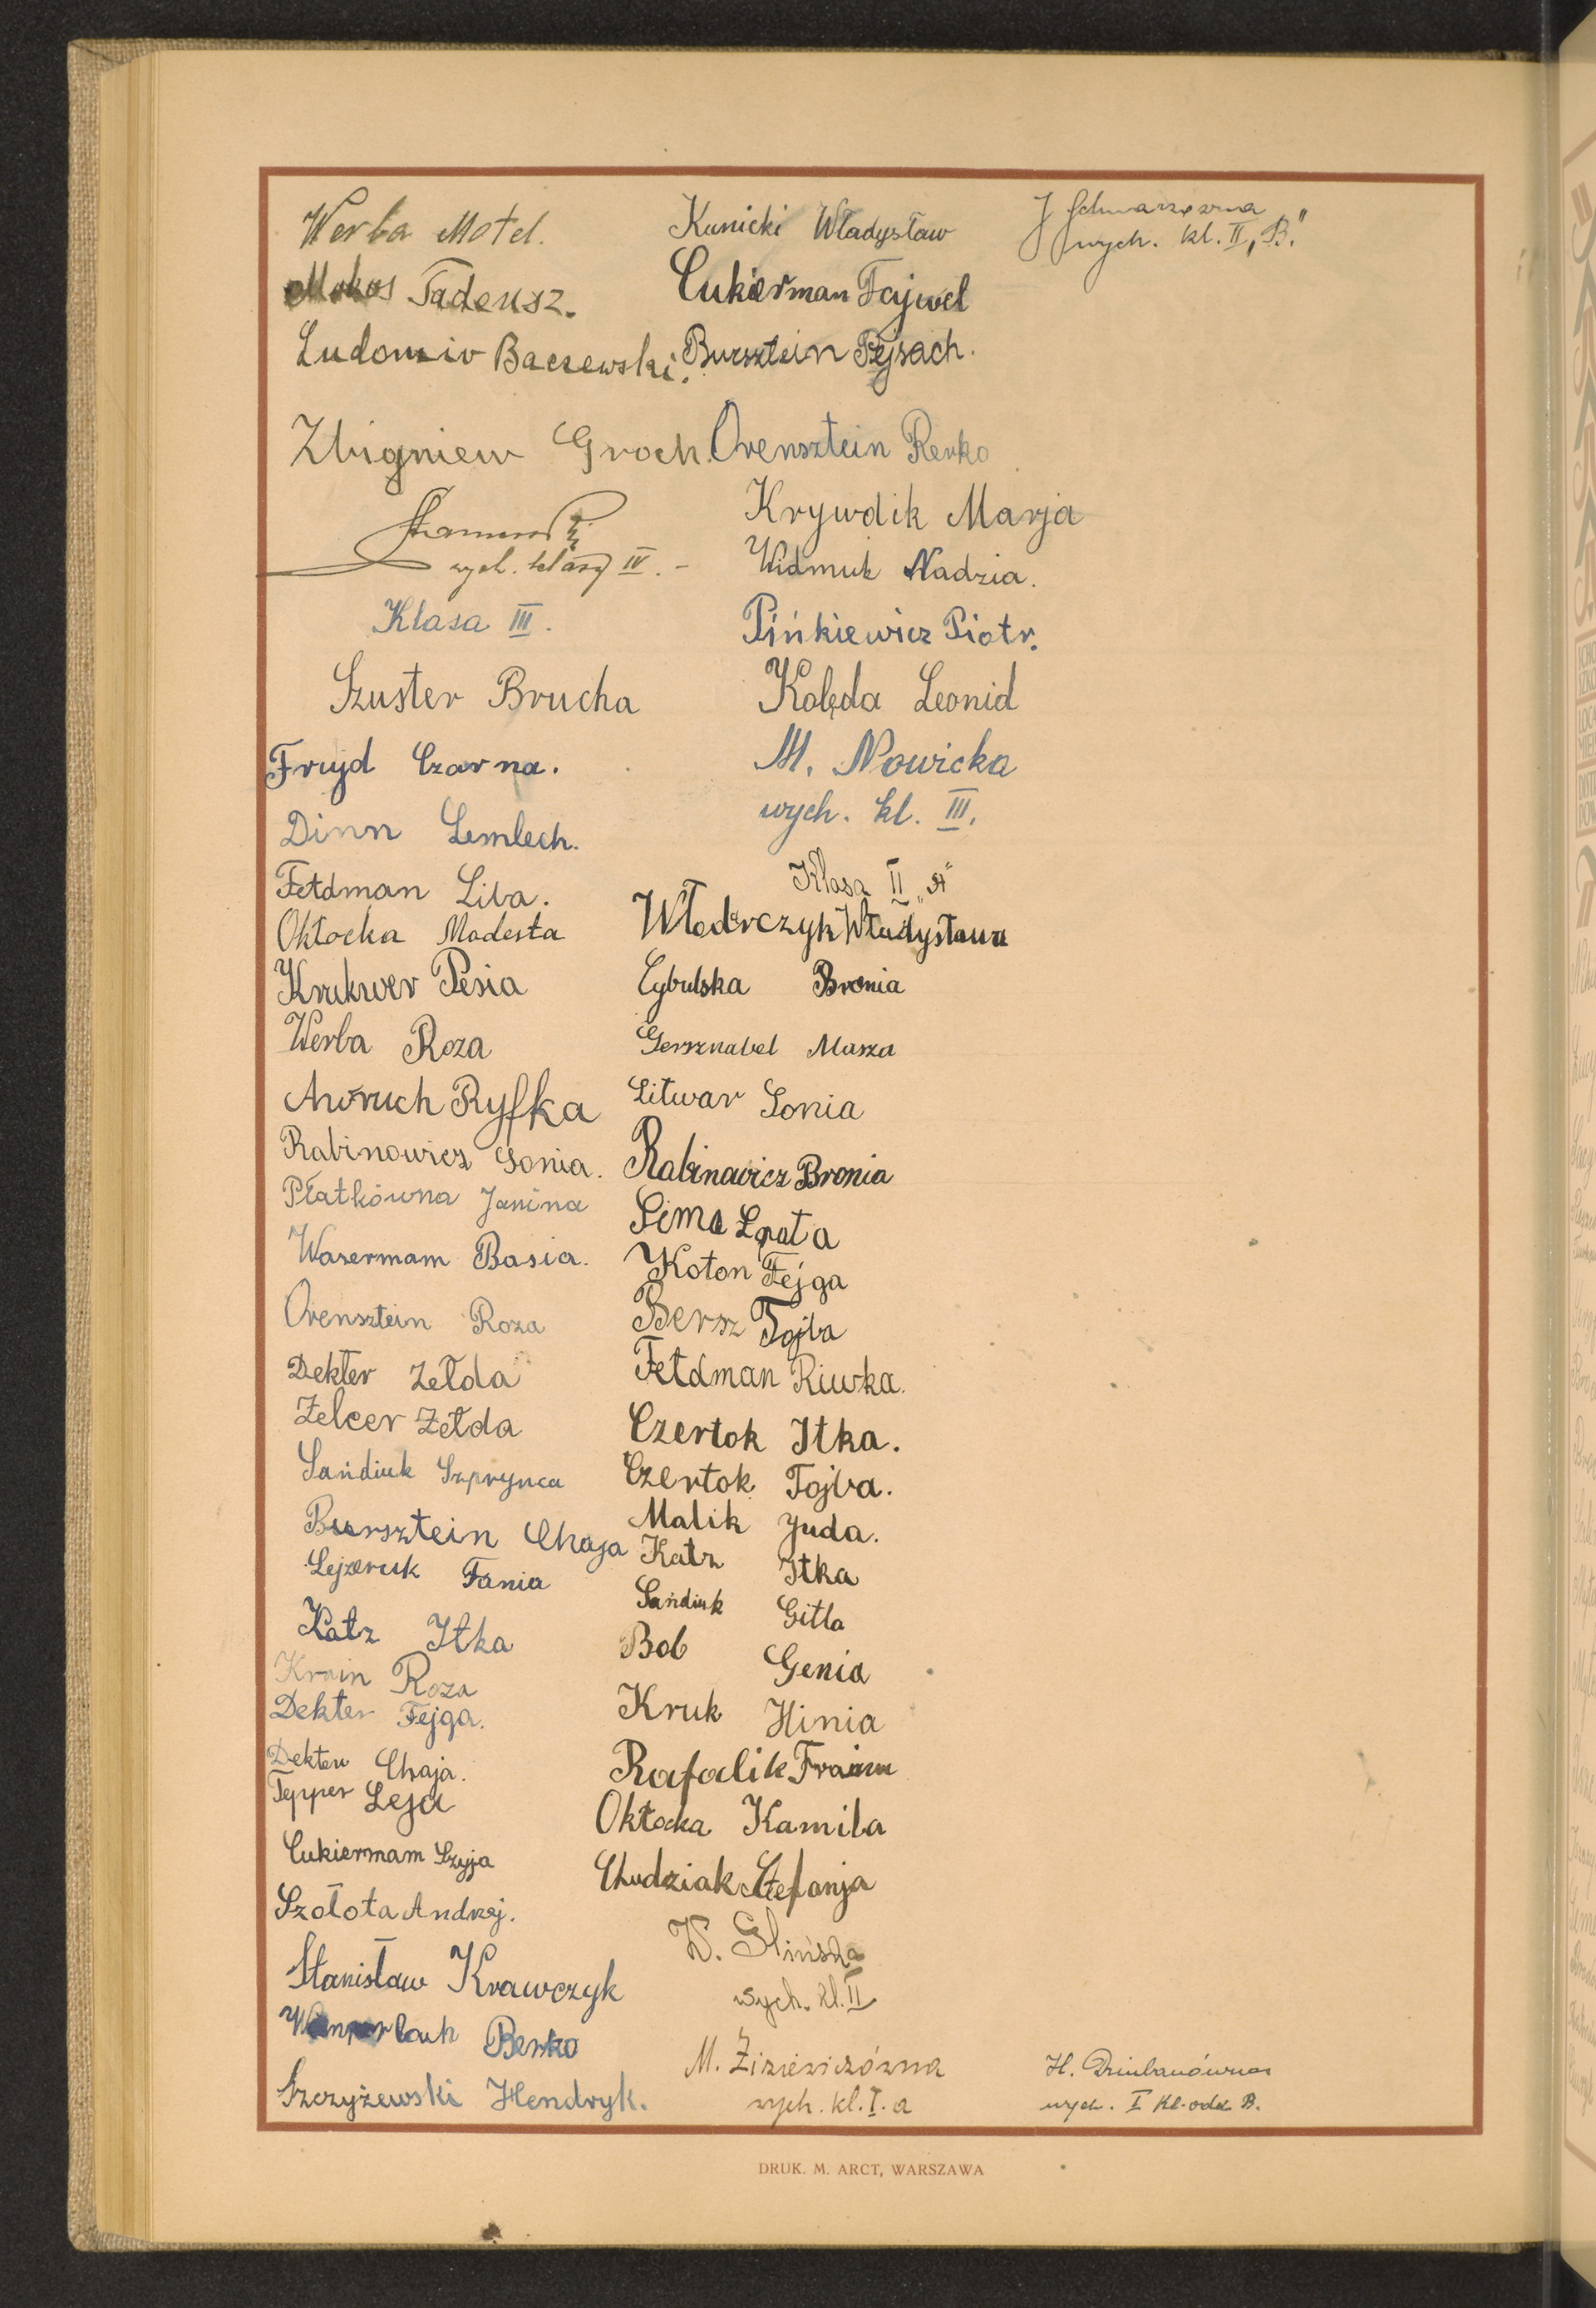 Werba Motel.
Mokos Tadeusz.
Ludomir Baczewski.
Zbigniew Groch.
wych. klasy IV. -
Klasa III.
Szuster Brucha
Frujd Czarna.
Dinn Lemlech.
Fełdman Liba.
Okłocka Modesta
Krukwer Pesia
Werba Roza
Awruch Ryfka
Rabinowicz Sonia.
Płatkówna Janina
Wasermam Basia.
Orensztein Roza
Dekter Zełda
Zelcer Zełda
Sańdiuk Szprynca
Bursztein Chaja
Lejzeruk Fania
Katz Itka
Kroin Roza
Dekter Fejga.
Dekter Chaja.
Tepper Leja
Cukiermam Szyja
Szołota Andrzej.
Stanisław Krawczyk
Berko
Szczyżewski Hendryk.
Kunicki Władysław
Cukierman Fajwel
Bursztein Pejsach.
Orensztein Berko
Krywdik Marja
Widmuk Nadzia.
Pińkiewicz Piotr.
Kolęda Leonid
M. Nowicka
wych. kl. III.
Klasa II „A"
Włodarczyk Władysława
Cybulska Bronia
Gersznabel Masza
Litwar Sonia
Rabinowicz Bronia
Sima Łopata
Koton Fejga
Bersz Tojba
Fełdman Riwka.
Czertok Itka.
Czertok Tojba.
Malik Juda.
Katz Itka
Sańdiuk Gitla
Bob Genia
Kruk Hinia
Rafalik Fraim
Okłocka Kamila
Chudziak Stefanja
W. Glińska
wych. kl. II
M. Ziziewiczówna
wych. kl. I. a
J Schwarzówna
wych. kl. II „B."
H. Dziubanówna
wych. I kl. odd. B.
DRUK. M. ARCT, WARSZAWA